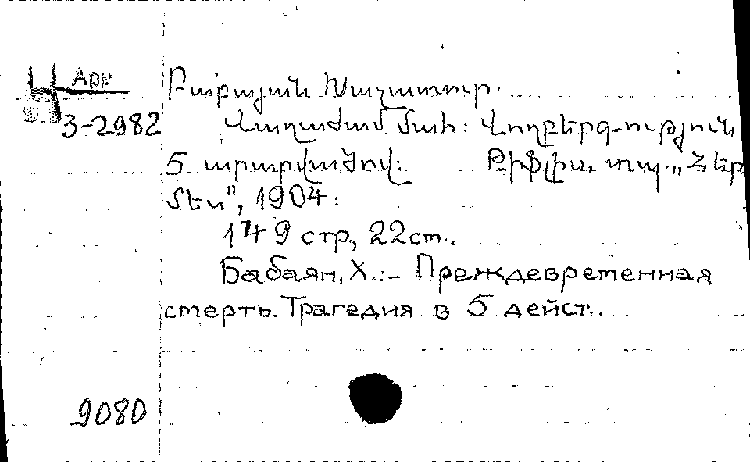 Ц Арм
3-2982
Բաբայան Խաչատուր.
Վաղաժամ մահ: Վողբերգություն
5 արարվածով: Թիֆլիս, տպ. „Հեր
մես", 1904:
149 стр, 22см.
Бабаян, Х.:– Преждевременная
смерть. Трагедия в 5 дейст..
9080